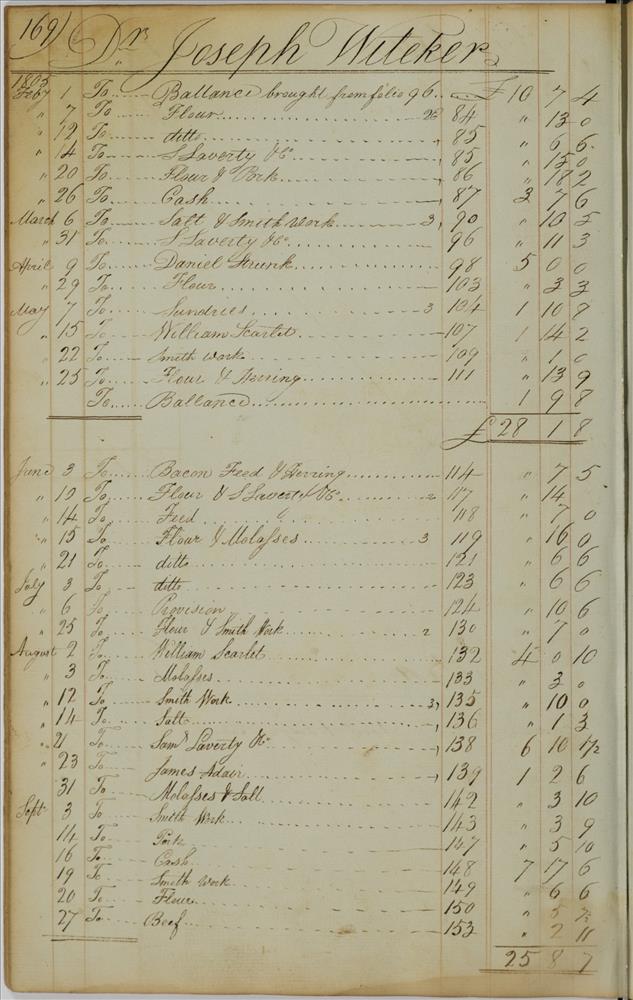 169) Dr. Joseph Witeker
1805
Feby 1 To Ballance brought from folio 96 £ 10 7 4
" 7 To Flour 84 " 13 0
" 12 To ditto 85 " 6 6
" 14 To S Laverty &Co 85 " 15 0
" 20 To Flour & Pork 86 " 18 2
" 26 To Cash 87 3 7 6
March 6 To Salt & Smith Work 3, 90 " 10 5
" 31 To S Laverty &Co 96 " 11 3
April 9 To Daniel Strunk 98 5 0 0
" 29 To Flour 103 " 3 3
May 7 To Sundries 3 104 1 10 8
" 15 To William Scarlet 107 1 14 2
" 22 To Smith Work 109 " 1 0
" 25 To Flour & Herring 111 " 13 9
To Ballance 1 9 8
£ 28 1 8
June 3 To Bacon Feed & Herring 114 " 7 5
" 10 To Flour & S Laverty &Co 2 117 " 14
" 14 To Feed 118 " 7 0
" 15 To Flour & Molasses 3 119 " 16 0
" 21 To ditto 121 " 6 6
July 3 To ditto 123 " 6 6
" 6 To Provision 124 " 10 6
" 25 To Flour & Smith Work 2 130 " 7 0
August 2 To William Scarlet 132 4 0 10
" 3 To Molasses 133 " 3 0
" 12 To Smith Work 3, 135 " 10 0
" 14 To Salt 136 " 1 3
" 21 To Saml Laverty &Co 138 6 10 1/2
" 23 To James Adair 139 1 2 6
31 To Molasses & Salt 142 " 3 10
Sept 3 To Smith Work 143 " 3 9
14 To Pork 147 " 5 10
16 To Cash 148 7 17 6
19 To Smith Work 149 " 6 6
20 To Flour 150 " 5
27 To Beef 153 " 2 11
25 8 7